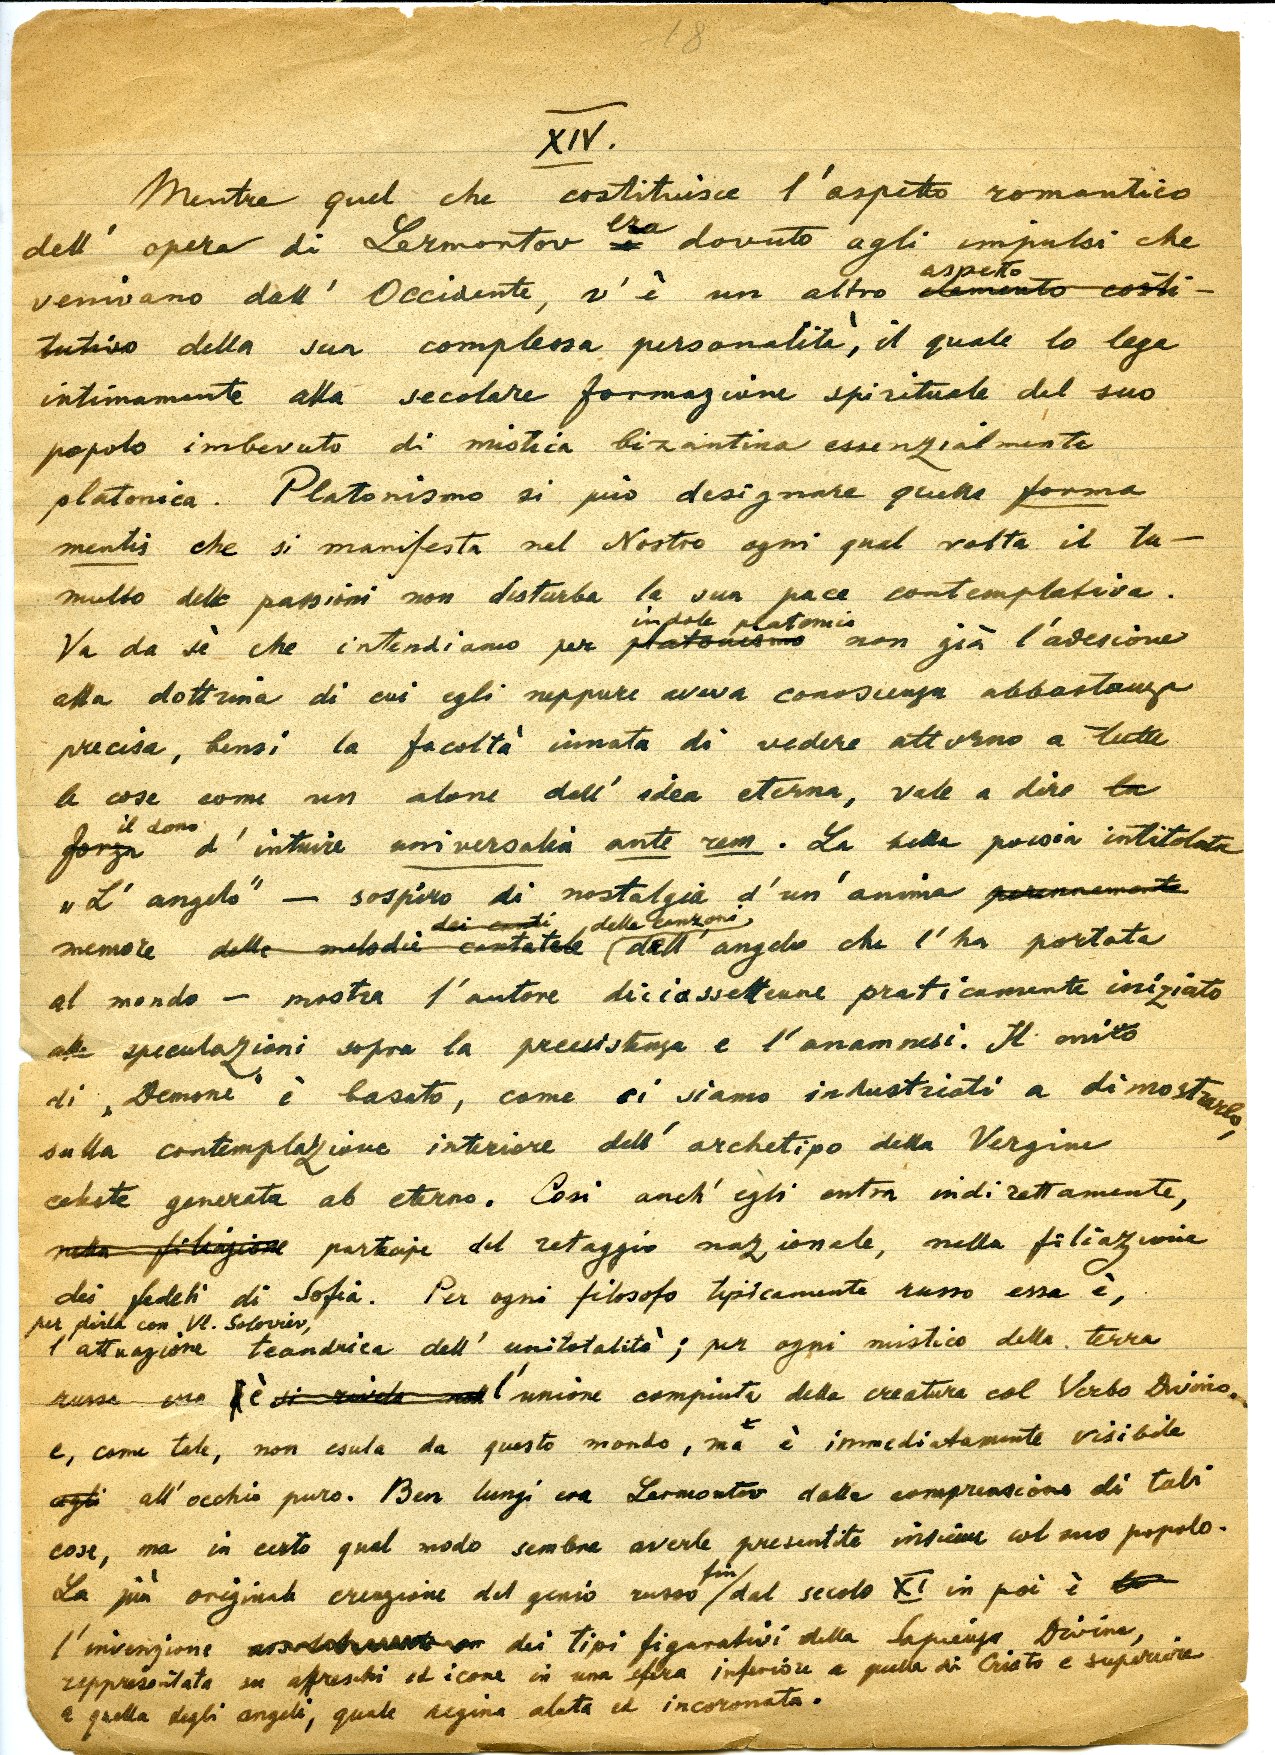 18
XIV.
Mentre quel che costituisce l'aspetto romantico
dell'opera di Lermontov e era dovuto agli impulsi che
venivano dall'Occidente, v'è un altro elemento costi- aspetto
tutivo della sua complessa personalità, il quale lo lega
intimamente alla secolare formazione spirituale del suo
popolo imbevuto di mistica bizantina essenzialmente
platonica. Platonismo si può designare quella forma
mentis che si manifesta nel Nostro ogni qual volta il tu-
multo delle passioni non disturba la sua pace contemplativa.
Va da sè che intendiamo per platonismo indole platonica non già l'adesione
alla dottrina di cui egli neppure aveva conoscenza abbastanza
precisa, bensì la facoltà innata di vedere attorno a tutte
le cose come un alone dell'idea eterna, vale a dire la
forza il dono d'intuire universalia ante rem. La bella poesia intitolata
„L'angelo" — sospiro di nostalgia d'un'anima perennemente
memore delle melodie cantatele dei canti delle canzoni dell'angelo che l'ha portata
al mondo — mostra l'autore diciassettenne praticamente iniziato
alle speculazioni sopra la preesistenza e l'anamnesi. Il mito
di „Demone" è basato, come ci siamo industriati a dimostrarlo,
sulla contemplazione interiore dell'archetipo della Vergine
celeste generata ab eterno. Così anch'egli entra indirettamente,
nella filiazione partecipe del retaggio nazionale, nella filiazione
dei fedeli di Sofia. Per ogni filosofo tipicamente russo essa è,
per dirla con Vl. Soloviev,
l'attuazione teandrica dell'unitotalità; per ogni mistico della terra
russa essa è si rivela nell l'unione compiuta della creatura col Verbo Divino.
e, come tale, non esula da questo mondo, ma è immediatamente visibile
agli all'occhio puro. Ben lungi era Lermontov dalla comprensione di tali
cose, ma in certo qual modo sembra averle presentite insieme col suo popolo.
La più originale creazione del genio russo fin dal secolo XI in poi è la
l'invenzione dei tipi figurativi della Sapienza Divina,
rappresentata su affreschi ed icone in una sfera inferiore a quella di Cristo e superiore
a quella degli angeli, quale regina alata ed incoronata.